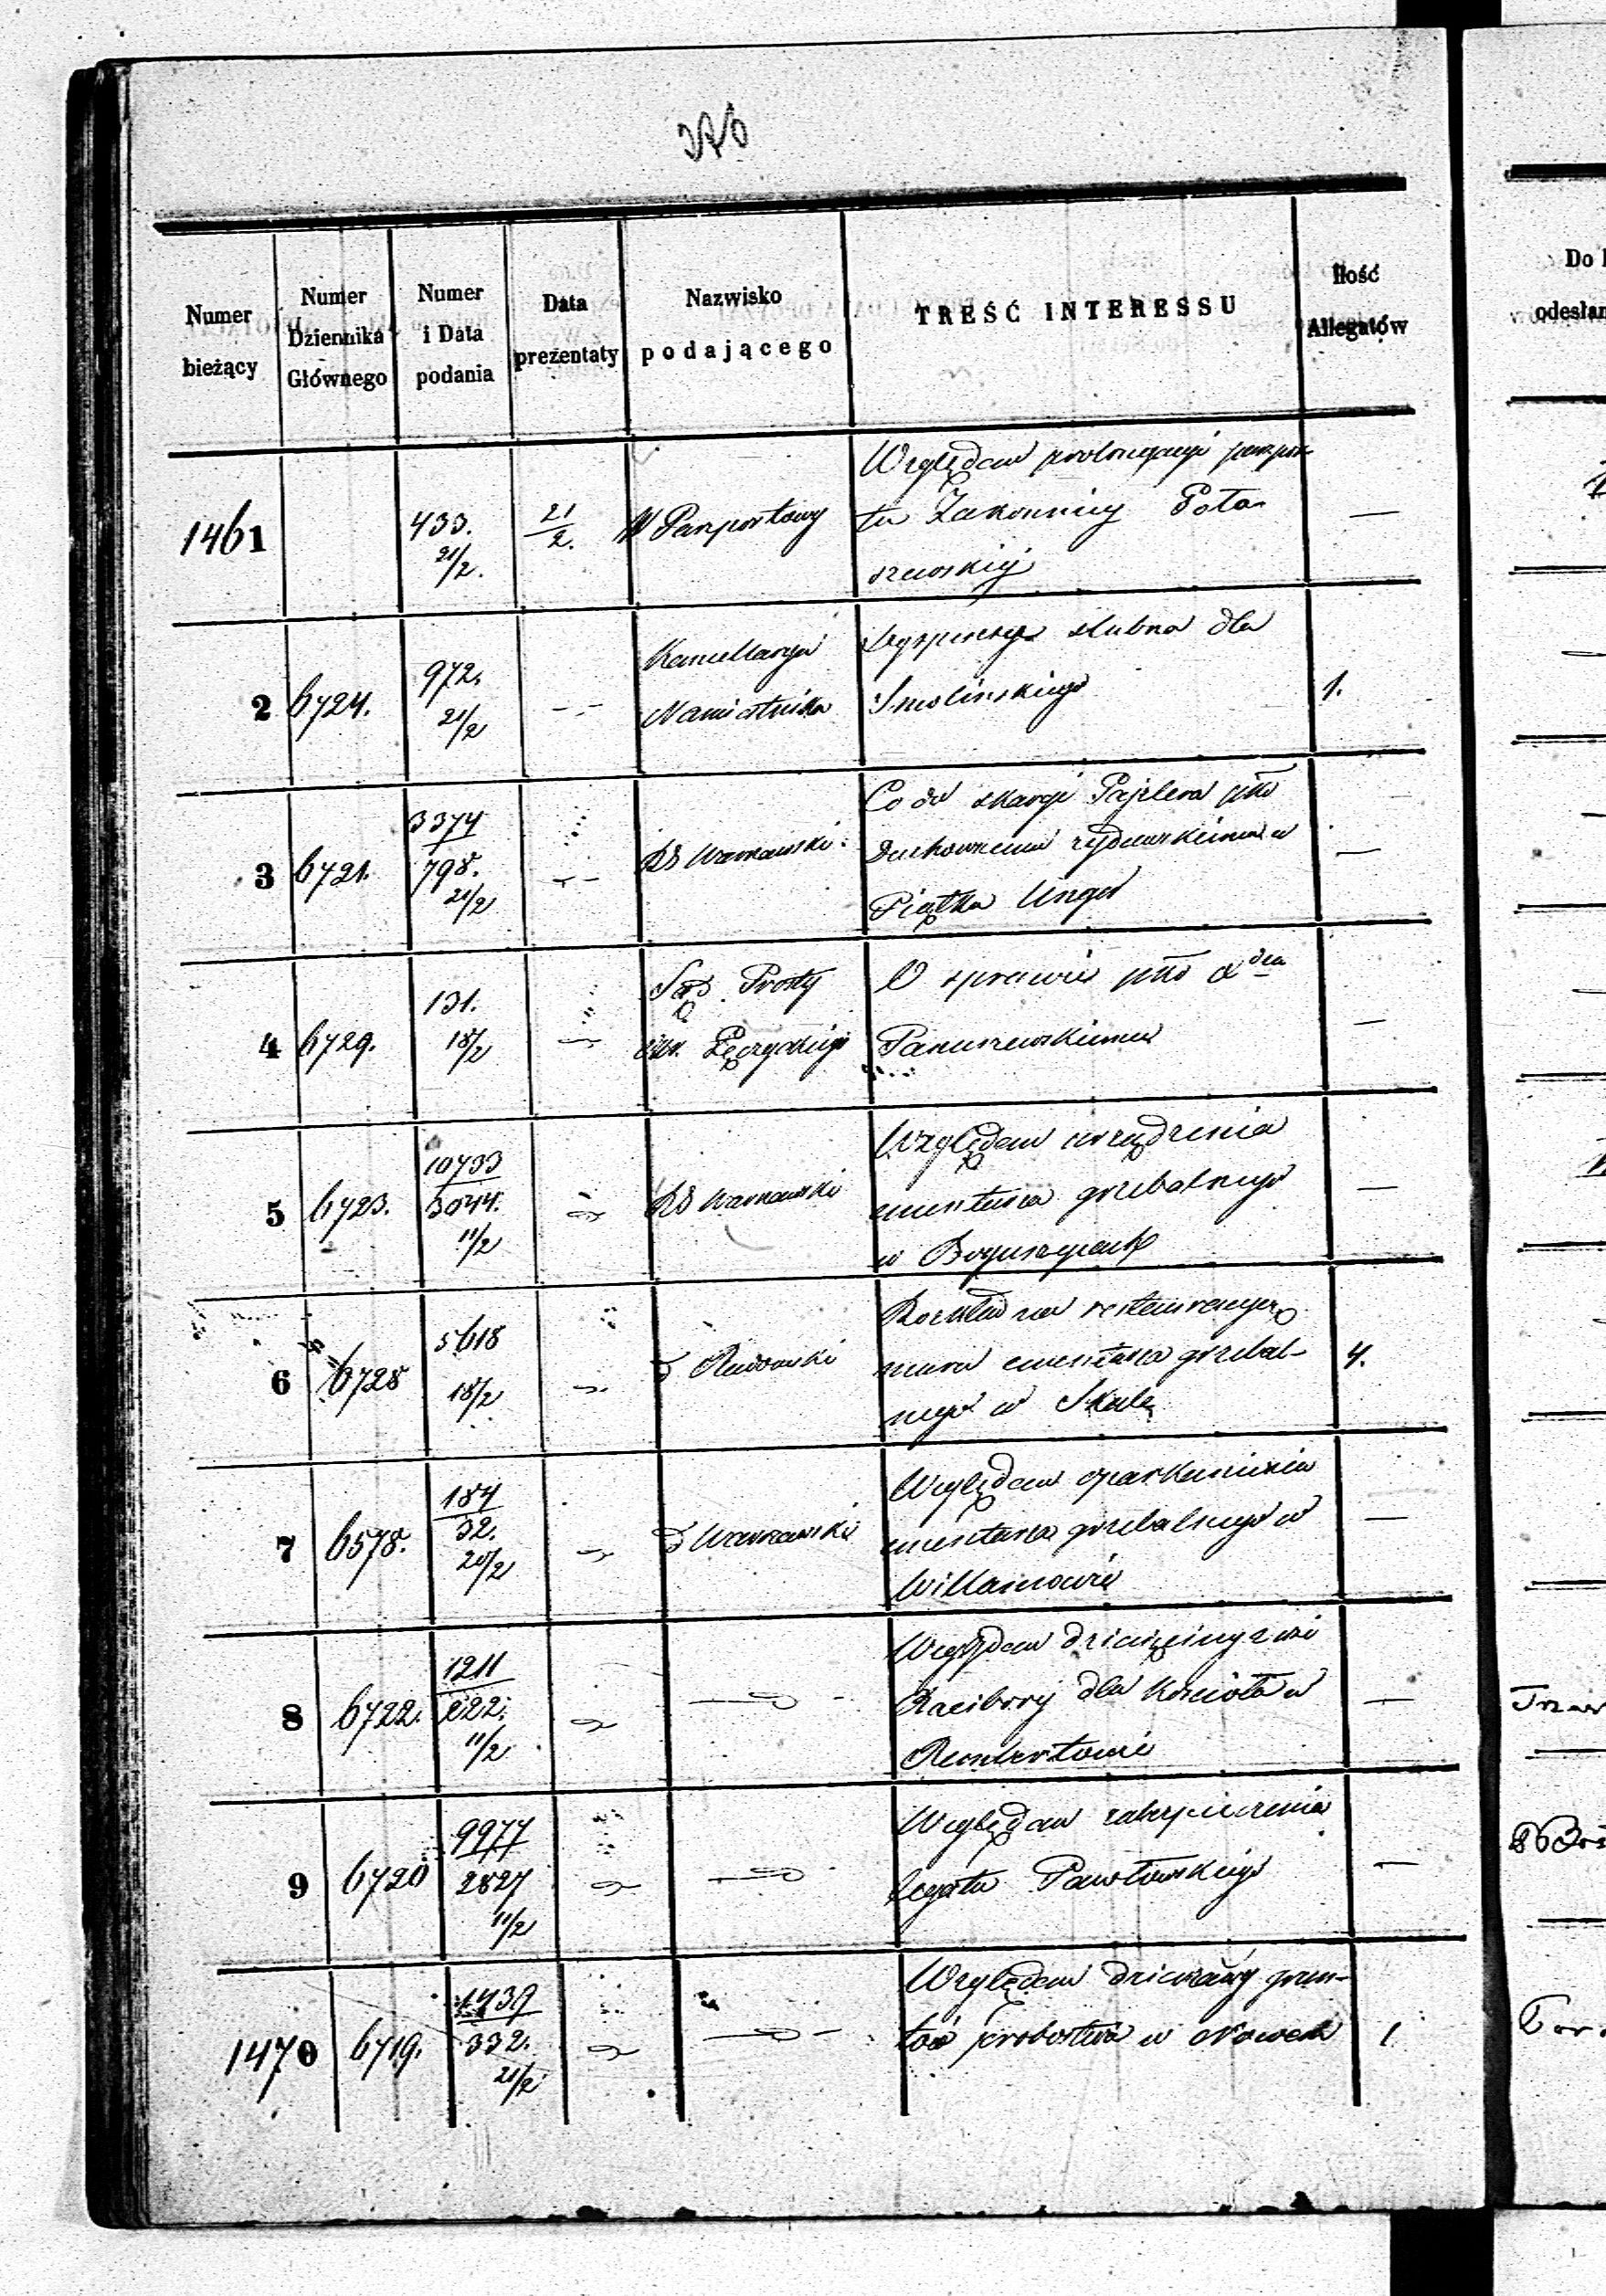 Numer bieżący
Numer Dziennika Głównego
Numer i Data podania
Data prezentaty
Nazwisko podającego
TREŚĆ INTERESSU
Ilość Allegatów
1461
433.
21/2.
21/2.
W Paszportowy
Względem prolongacyi paszpor
tu Zakonnicy Poto
szewskiej
—
2
6724.
972.
21/2
Kancellarya
Namiestnika
Dyspensa ślubna dla
Smolińskiego
1.
3
6721.
3374
798.
21/2
RG Warszawski
Co do skargi Pajzlera ptko
duchownemu żydowskiemu w
Piątku Unger
—
4
6729.
131.
18/2
Sąd Prosty
Łęczyckiego
W sprawie ptko Xdzu
Januszewskiemu
—
5
6723.
10733
3044.
11/2
RG Warszawski
Względem urządzenia
cmentarza grzebalnego
w Boguszycach
—
6
6728
5618
18/2
D Radomski
Rozkład na restauracyę
muru cmentarza grzebal-
nego w Skale
4.
7
6578.
184
32.
20/2
D Warszawski
Względem oparkanienia
cmentarza grzebalnego w
Willanowie
—
8
6722.
1211
222.
11/2
Względem dziesięciny z wsi
Racibory dla Kościoła w
Rembertowie
—
9
6720
9977
2827
11/2
Względem zabezpieczenia
legatu Pawłowskiego
—
1470
6719.
1439
332.
21/2
Względem dzierżawy grun-
tów probostwa w
1
Do
odesłan